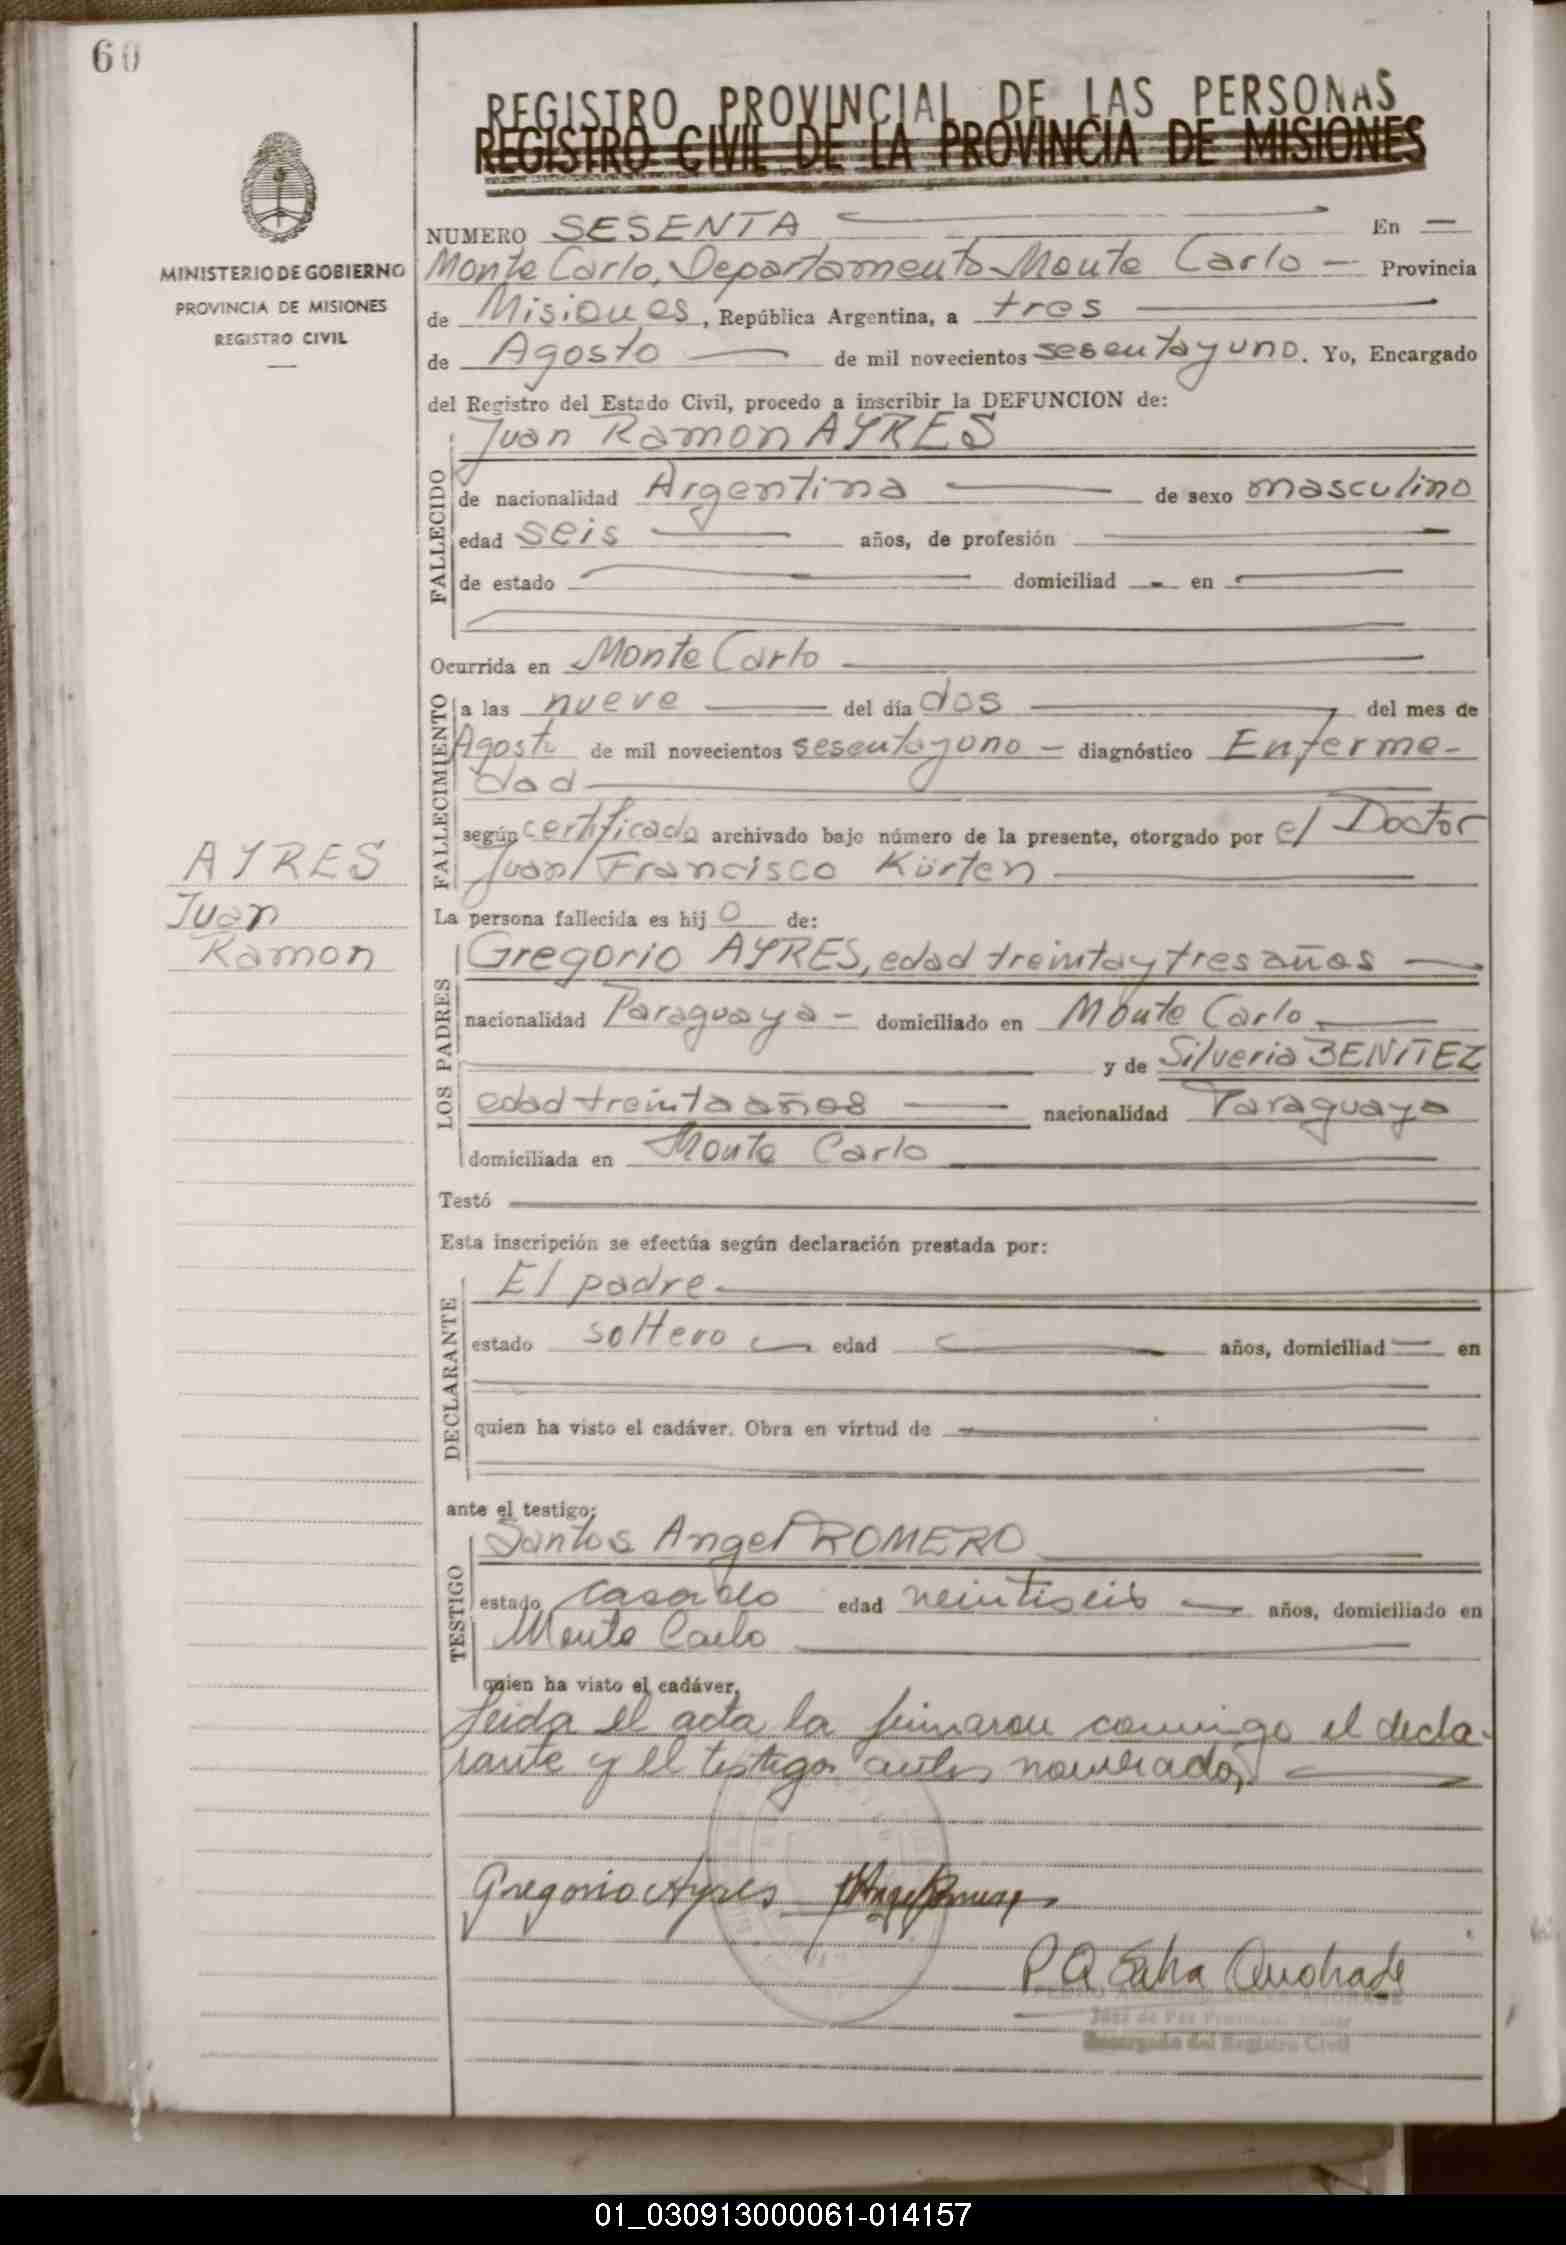 60
REGISTRO PROVINCIAL DE LAS PERSONAS
REGISTRO CIVIL DE LA PROVINCIA DE MISIONES
MINISTERIO DE GOBIERNO
PROVINCIA DE MISIONES
REGISTRO CIVIL
NUMERO SESENTA En
Monte Carlo, Departamento Monte Carlo Provincia
de Misiones, República Argentina, a tres
de Agosto de mil novecientos sesentayuno. Yo, Encargado
del Registro del Estado Civil, procedo a inscribir la DEFUNCION de:
FALLECIDO
Juan Ramon AYRES
de nacionalidad Argentina de sexo masculino
edad seis años, de profesión
de estado domiciliad en
Ocurrida en Monte Carlo
FALLECIMIENTO
a las nueve del día dos del mes de
Agosto de mil novecientos sesentayuno diagnóstico Enferme-
dad
según certificado archivado bajo número de la presente, otorgado por el Doctor
Juan Francisco Kürten
AYRES
Juan
Ramon
La persona fallecida es hij o de:
LOS PADRES
Gregorio AYRES, edad treintaytres años
nacionalidad Paraguaya domiciliado en Monte Carlo
y de Silveria BENITEZ
edad treinta años nacionalidad Paraguaya
domiciliada en Monte Carlo
Testó
Esta inscripción se efectúa según declaración prestada por:
DECLARANTE
El padre
estado soltero edad años, domiciliad en
quien ha visto el cadáver. Obra en virtud de
ante el testigo:
TESTIGO
Santos Angel ROMERO
estado casado edad veintiseis años, domiciliado en
Monte Carlo
quien ha visto el cadáver.
Leida el acta la firmaron conmigo el decla-
rante y el testigo antes nombrado,
Gregorio Ayres
P A Silva Andrade
Juez de Paz
Encargado del Registro Civil
01_030913000061-014157